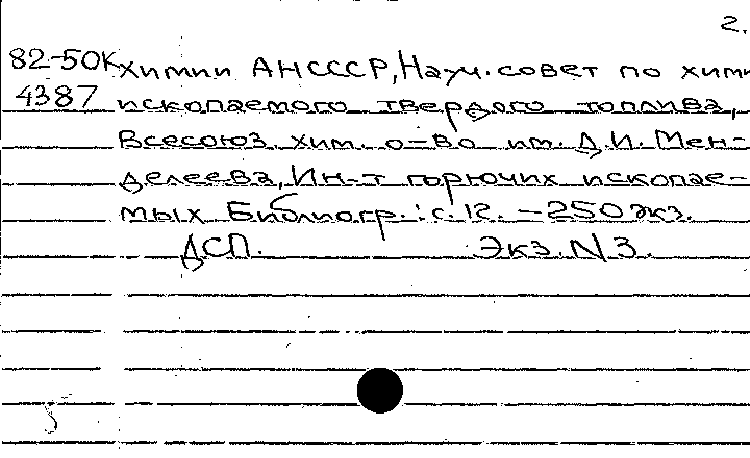 2.
82-50К химии АНСССР, Науч. совет по хими
4387 ископаемого твердого топлива,
Всесоюз. хим. о-во им. Д.И. Мен-
делеева, Ин-т горючих ископае-
мых Библиогр.: с. 12. – 250 экз.
ДСП. Экз. N 3.